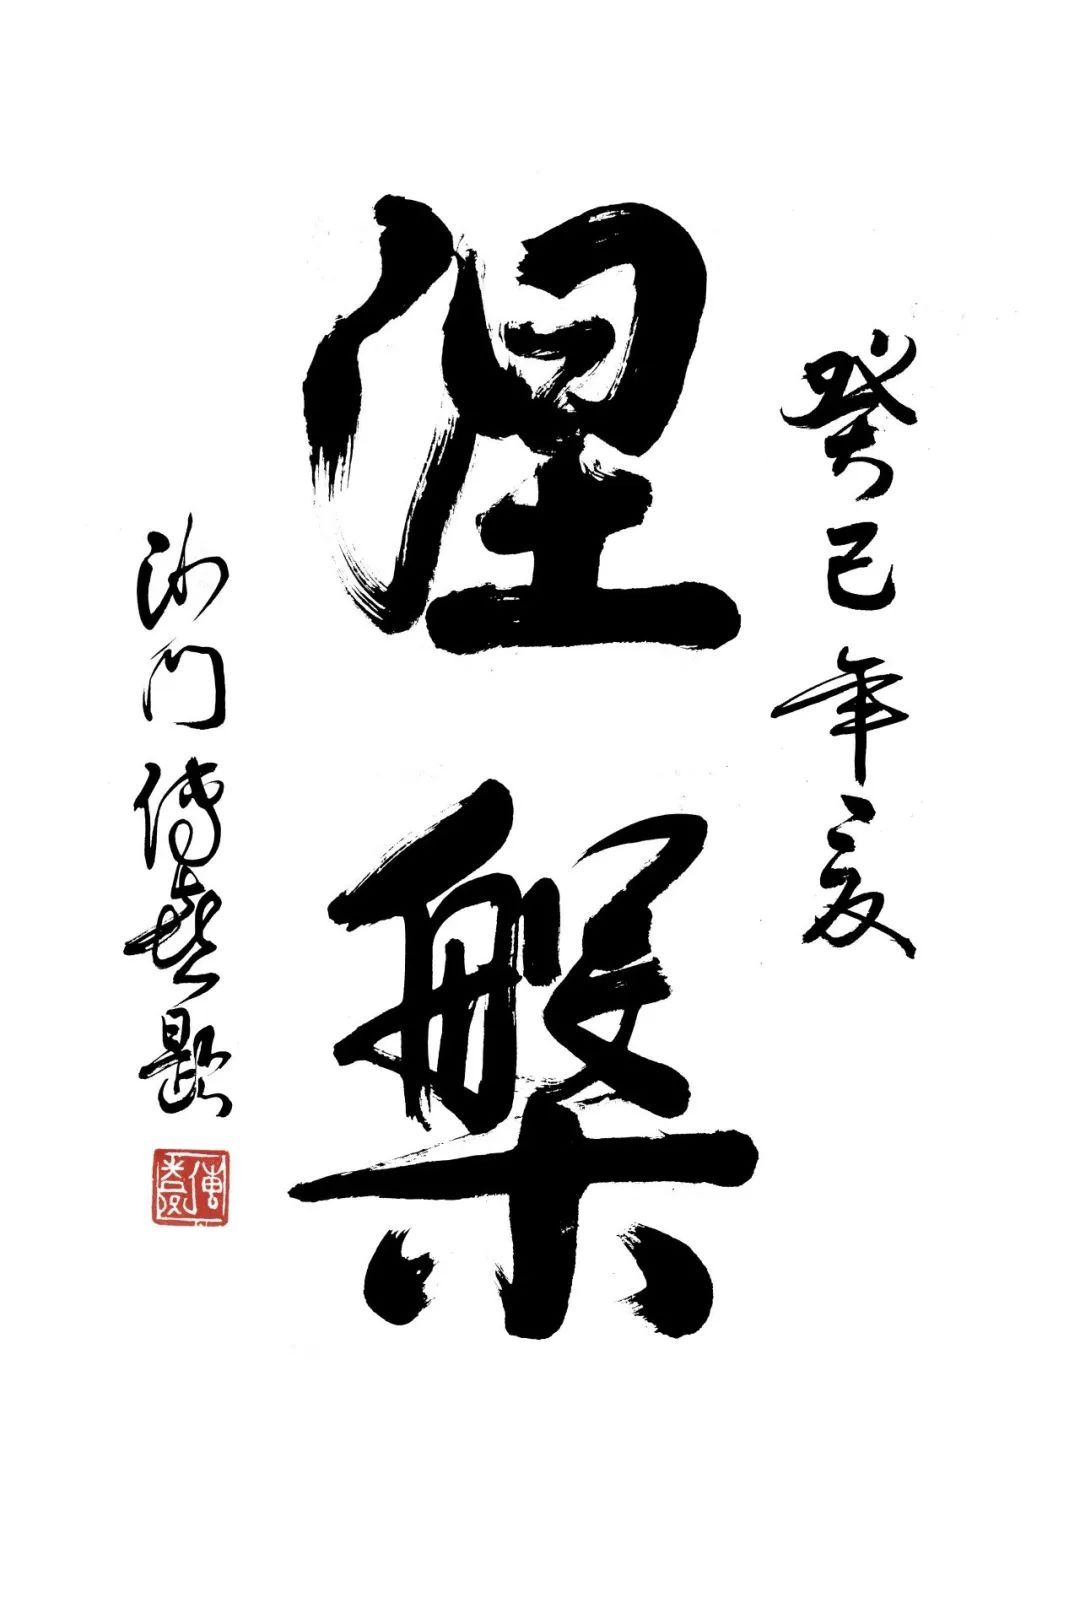 癸巳年夏
涅槃
沙门傳喜題
傳喜